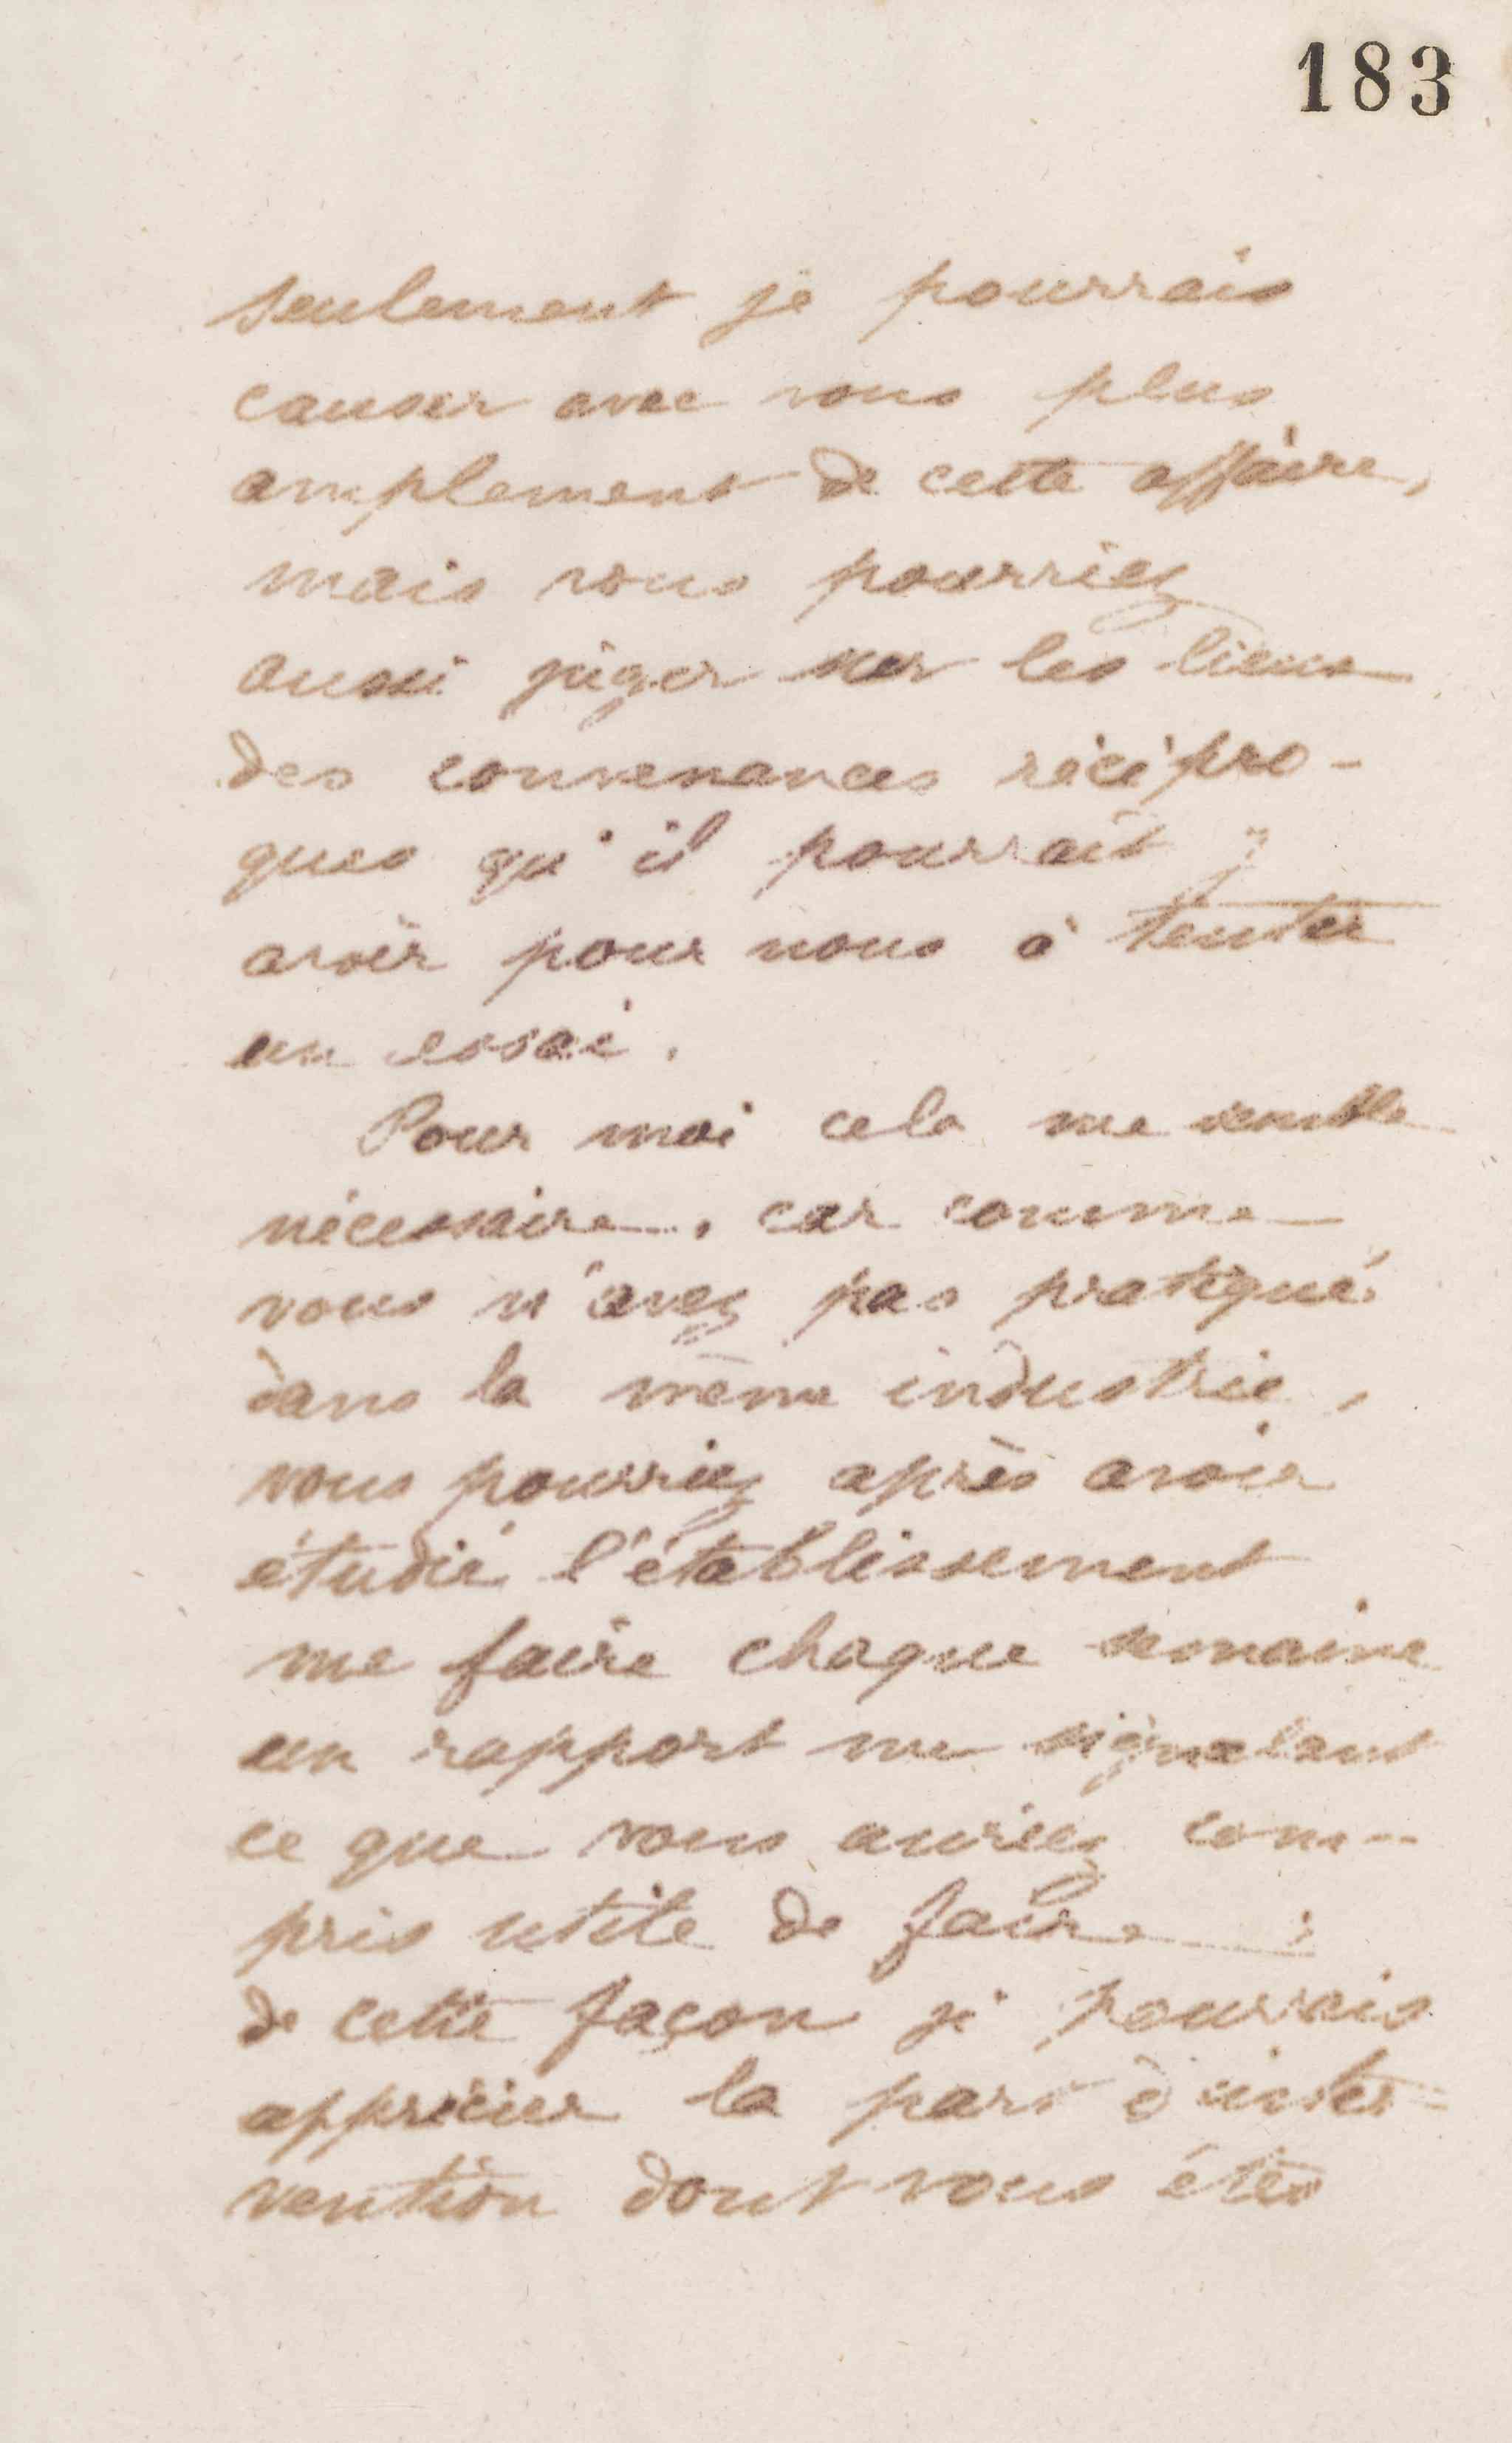 183
seulement je pourrais
causer avec vous plus
amplement de cette affaire,
mais vous pourriez
aussi juger sur les lieux
des convenances récipro-
ques qu'il pourrait y
avoir pour nous à tenter
un essai.
Pour moi cela me semble
nécessaire, car comme
vous n'avez pas pratiqué
dans la même industrie,
vous pourriez après avoir
étudié l'établissement
me faire chaque semaine
un rapport me signalant
ce que vous auriez com-
pris utile de faire ;
de cette façon je pourrais
apprécier la part d'inter-
vention dont vous êtes